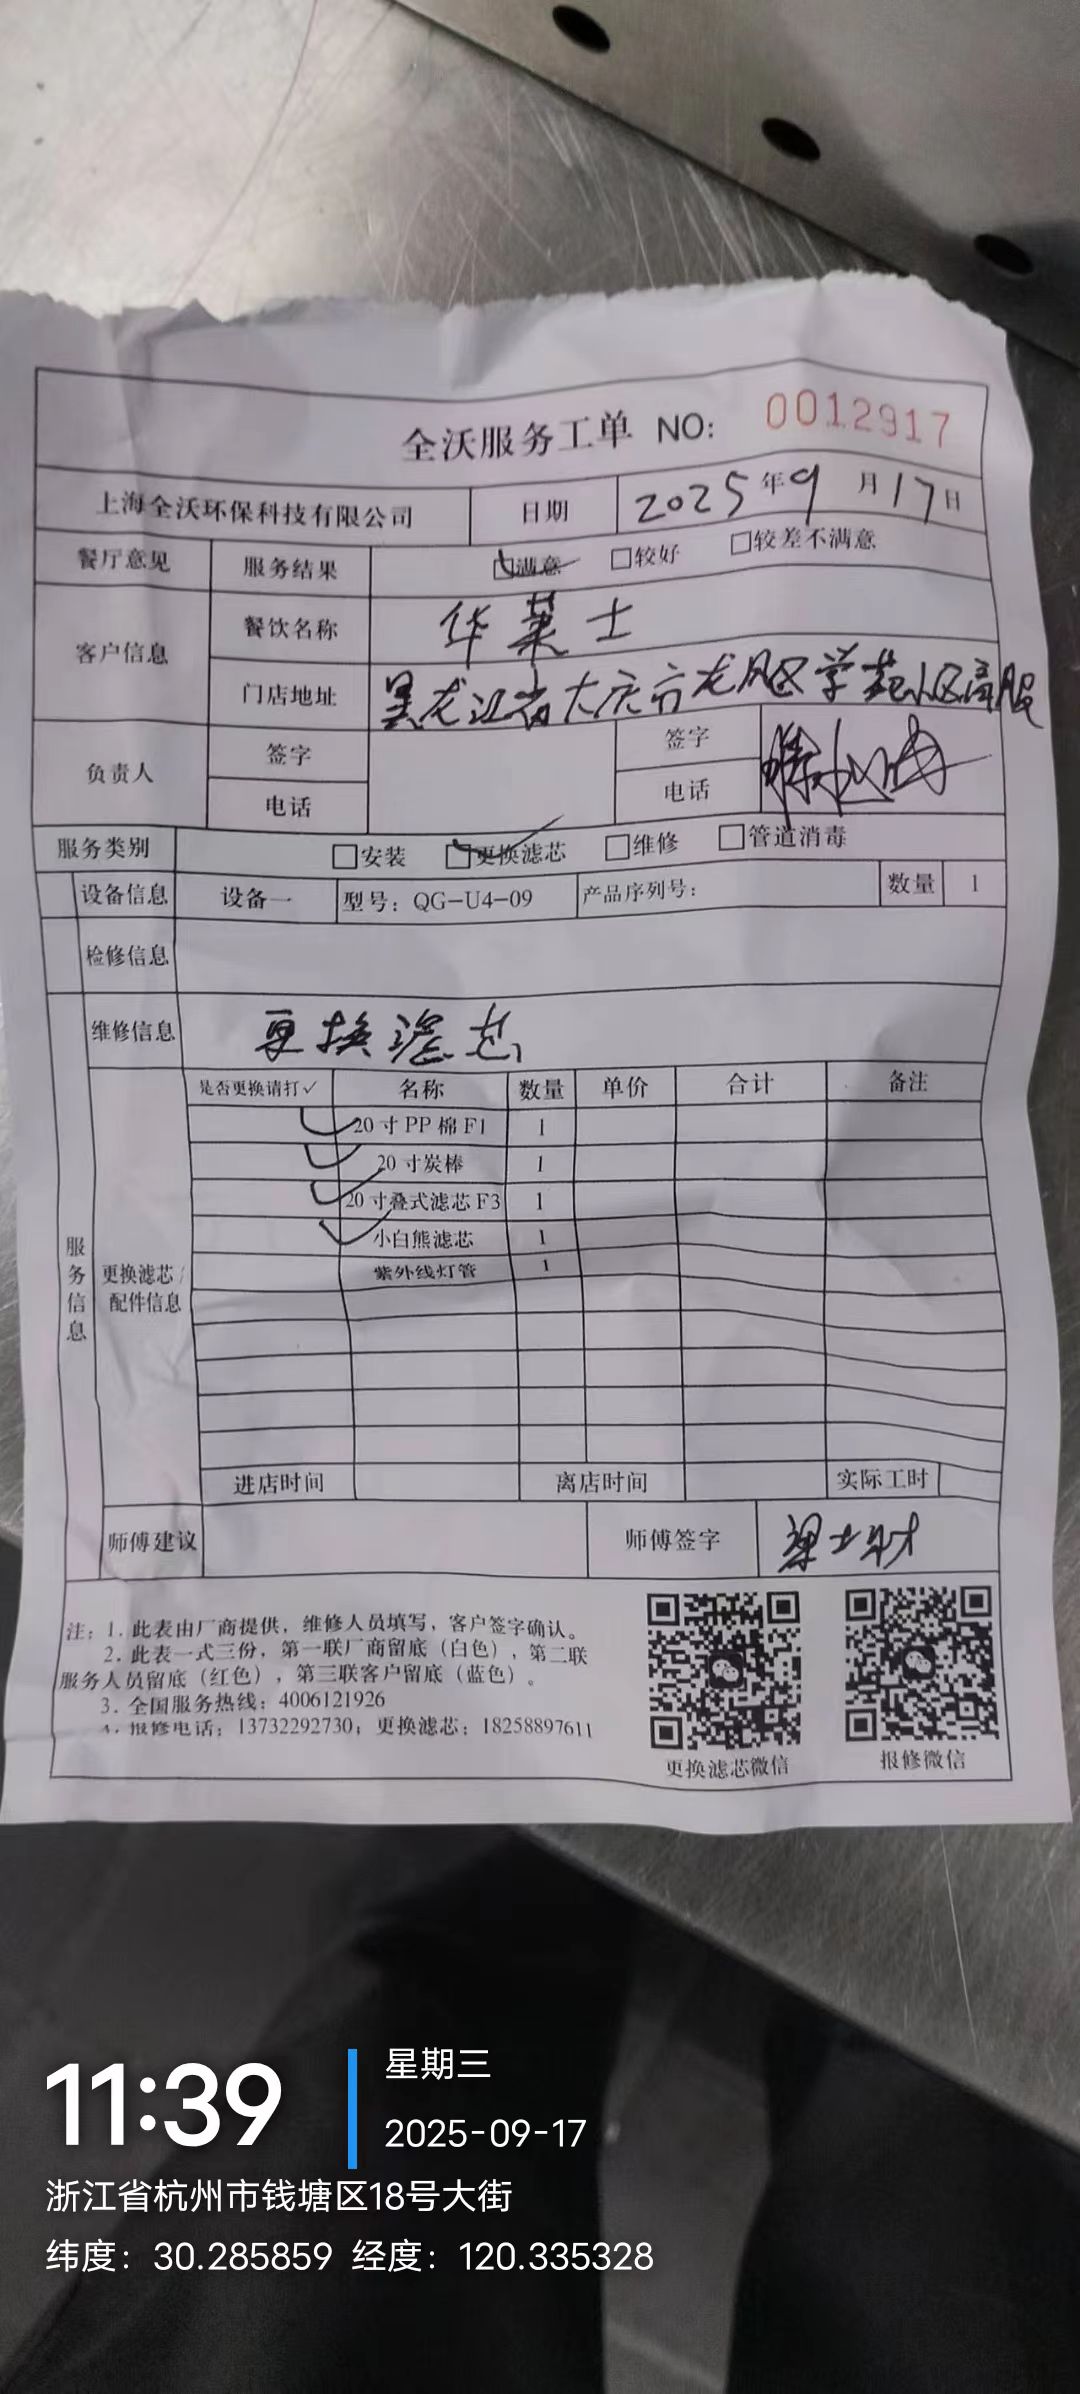 全沃服务工单 NO: 0012917
上海全沃环保科技有限公司 日期 2025年9月17日
餐厅意见 服务结果 满意 较好 较差不满意
客户信息 餐饮名称 华莱士
门店地址 黑龙江省大庆市龙凤区学苑小区商服
负责人 签字 签字
电话 电话
服务类别 安装 更换滤芯 维修 管道消毒
设备信息 设备一 型号：QG-U4-09 产品序列号： 数量 1
检修信息
维修信息 更换滤芯
是否更换请打✓ 名称 数量 单价 合计 备注
✓ 20寸PP棉F1 1
✓ 20寸炭棒 1
✓ 20寸叠式滤芯F3 1
✓ 小白熊滤芯 1
紫外线灯管 1
服务信息
更换滤芯/
配件信息
进店时间 离店时间 实际工时
师傅建议 师傅签字
注：1. 此表由厂商提供，维修人员填写，客户签字确认。
2. 此表一式三份，第一联厂商留底（白色），第二联
服务人员留底（红色），第三联客户留底（蓝色）。
3. 全国服务热线：4006121926
4. 报修电话：13732292730；更换滤芯：18258897611
更换滤芯微信 报修微信
11:39
星期三
2025-09-17
浙江省杭州市钱塘区18号大街
纬度：30.285859 经度：120.335328